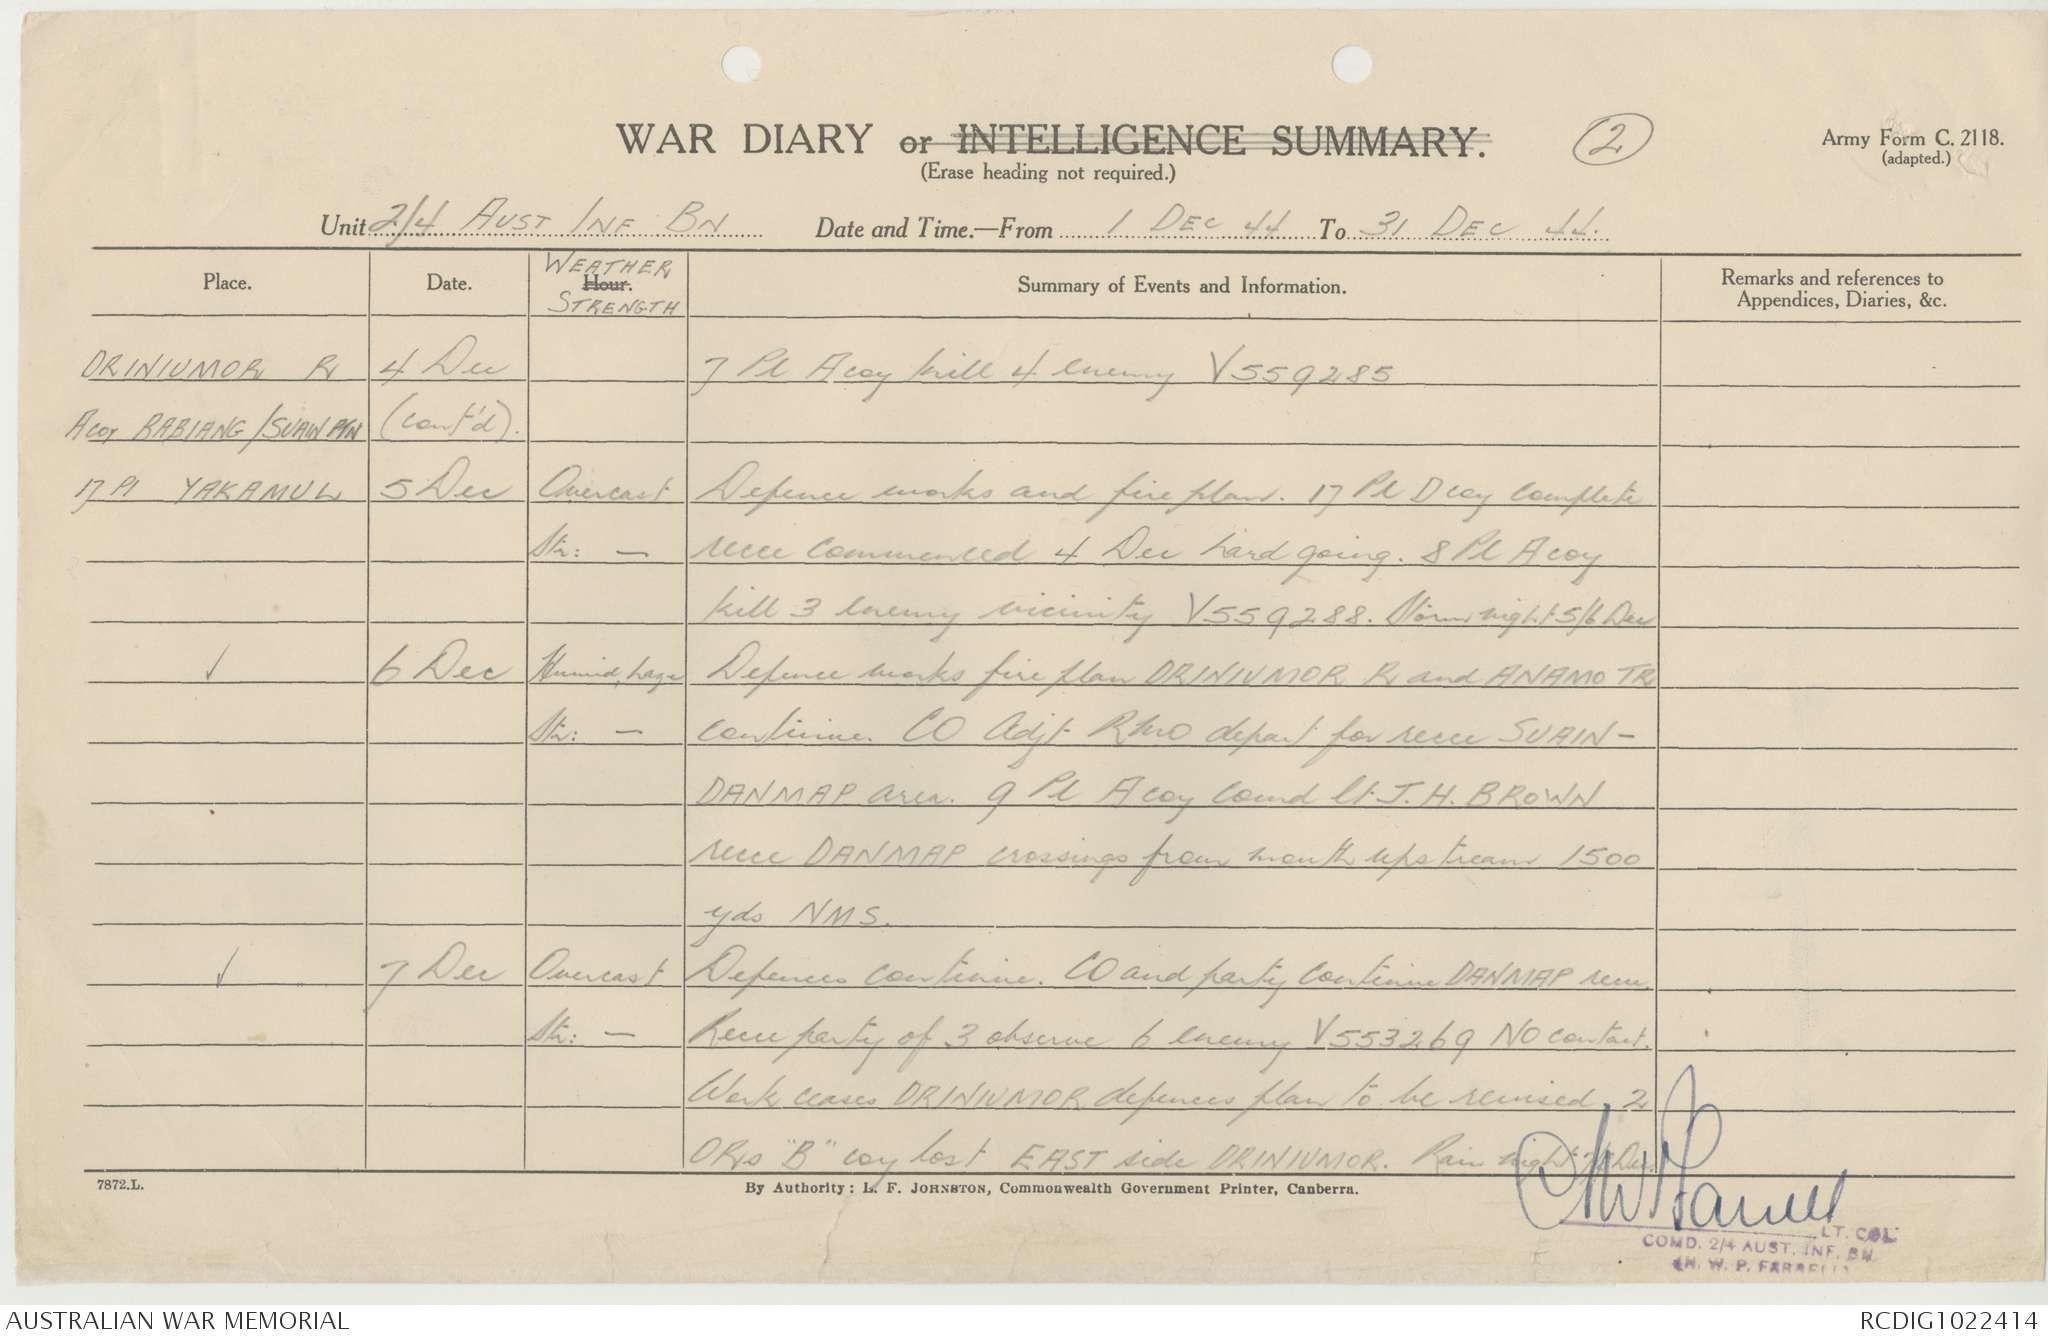 WAR DIARY or INTELLIGENCE SUMMARY.
(Erase heading not required.)
2
Army Form C. 2118.
(adapted.)
Unit 2/4 AUST INF BN Date and Time.—From 1 DEC 44 To 31 DEC 44.
Place. Date. Hour. WEATHER STRENGTH Summary of Events and Information. Remarks and references to Appendices, Diaries, &c.
DRINIUMOR R 4 Dec 7 Pl A coy kill 4 enemy V559285
A coy RABIANG/SUAIN A/N (cont'd).
17 Pl YAKAMUL 5 Dec Overcast Defence works and fire plan. 17 Pl D coy complete
Str: — recce commenced 4 Dec hard going. 8 Pl A coy
kill 3 enemy vicinity V559288. Storm night 5/6 Dec
✓ 6 Dec Humid, haze Defence works fire plan DRINIUMOR R and ANAMO TR
Str: — continue. CO Adjt RMO depart for recce SUAIN-
DANMAP area. 9 Pl A coy Comd Lt J.H. BROWN
recce DANMAP crossings from mouth upstream 1500
yds NMS.
✓ 7 Dec Overcast Defences continue. CO and party continue DANMAP recce.
Str: — Recce party of 3 observe 6 enemy V553269 NO contact.
Work ceases DRINIUMOR defences plan to be revised. 2
ORs "B" coy lost EAST side DRINIUMOR. Rain night 7/8 Dec.
7872.L.
By Authority: L. F. JOHNSTON, Commonwealth Government Printer, Canberra.
LT. COL.
COMD. 2/4 AUST. INF. BN
W. P. FARRELL
AUSTRALIAN WAR MEMORIAL
RCDIG1022414